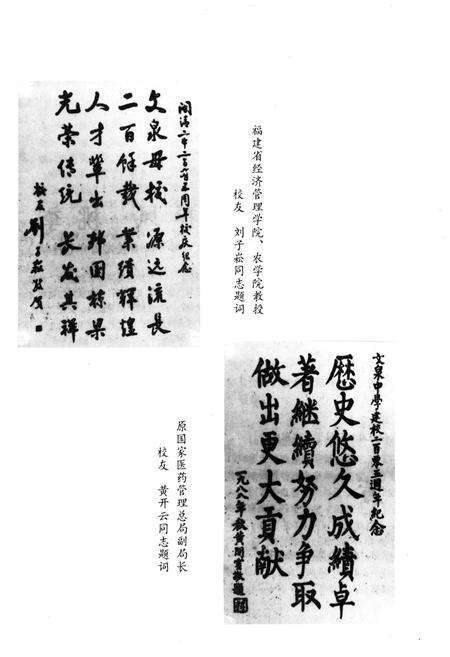 闽清一中二百零五周年校庆纪念
文泉母校 源远流长
二百馀载 業绩辉煌
人才輩出 邦国栋梁
光荣传统 長发其祥
校友
福建省经济管理学院、农学院教授
校友 刘子崧同志题词
文泉中學建校二百零五週年纪念
歷史悠久成績卓
著繼續努力争取
做出更大貢献
一九八八年
原国家医药管理总局副局长
校友 黄开云同志题词